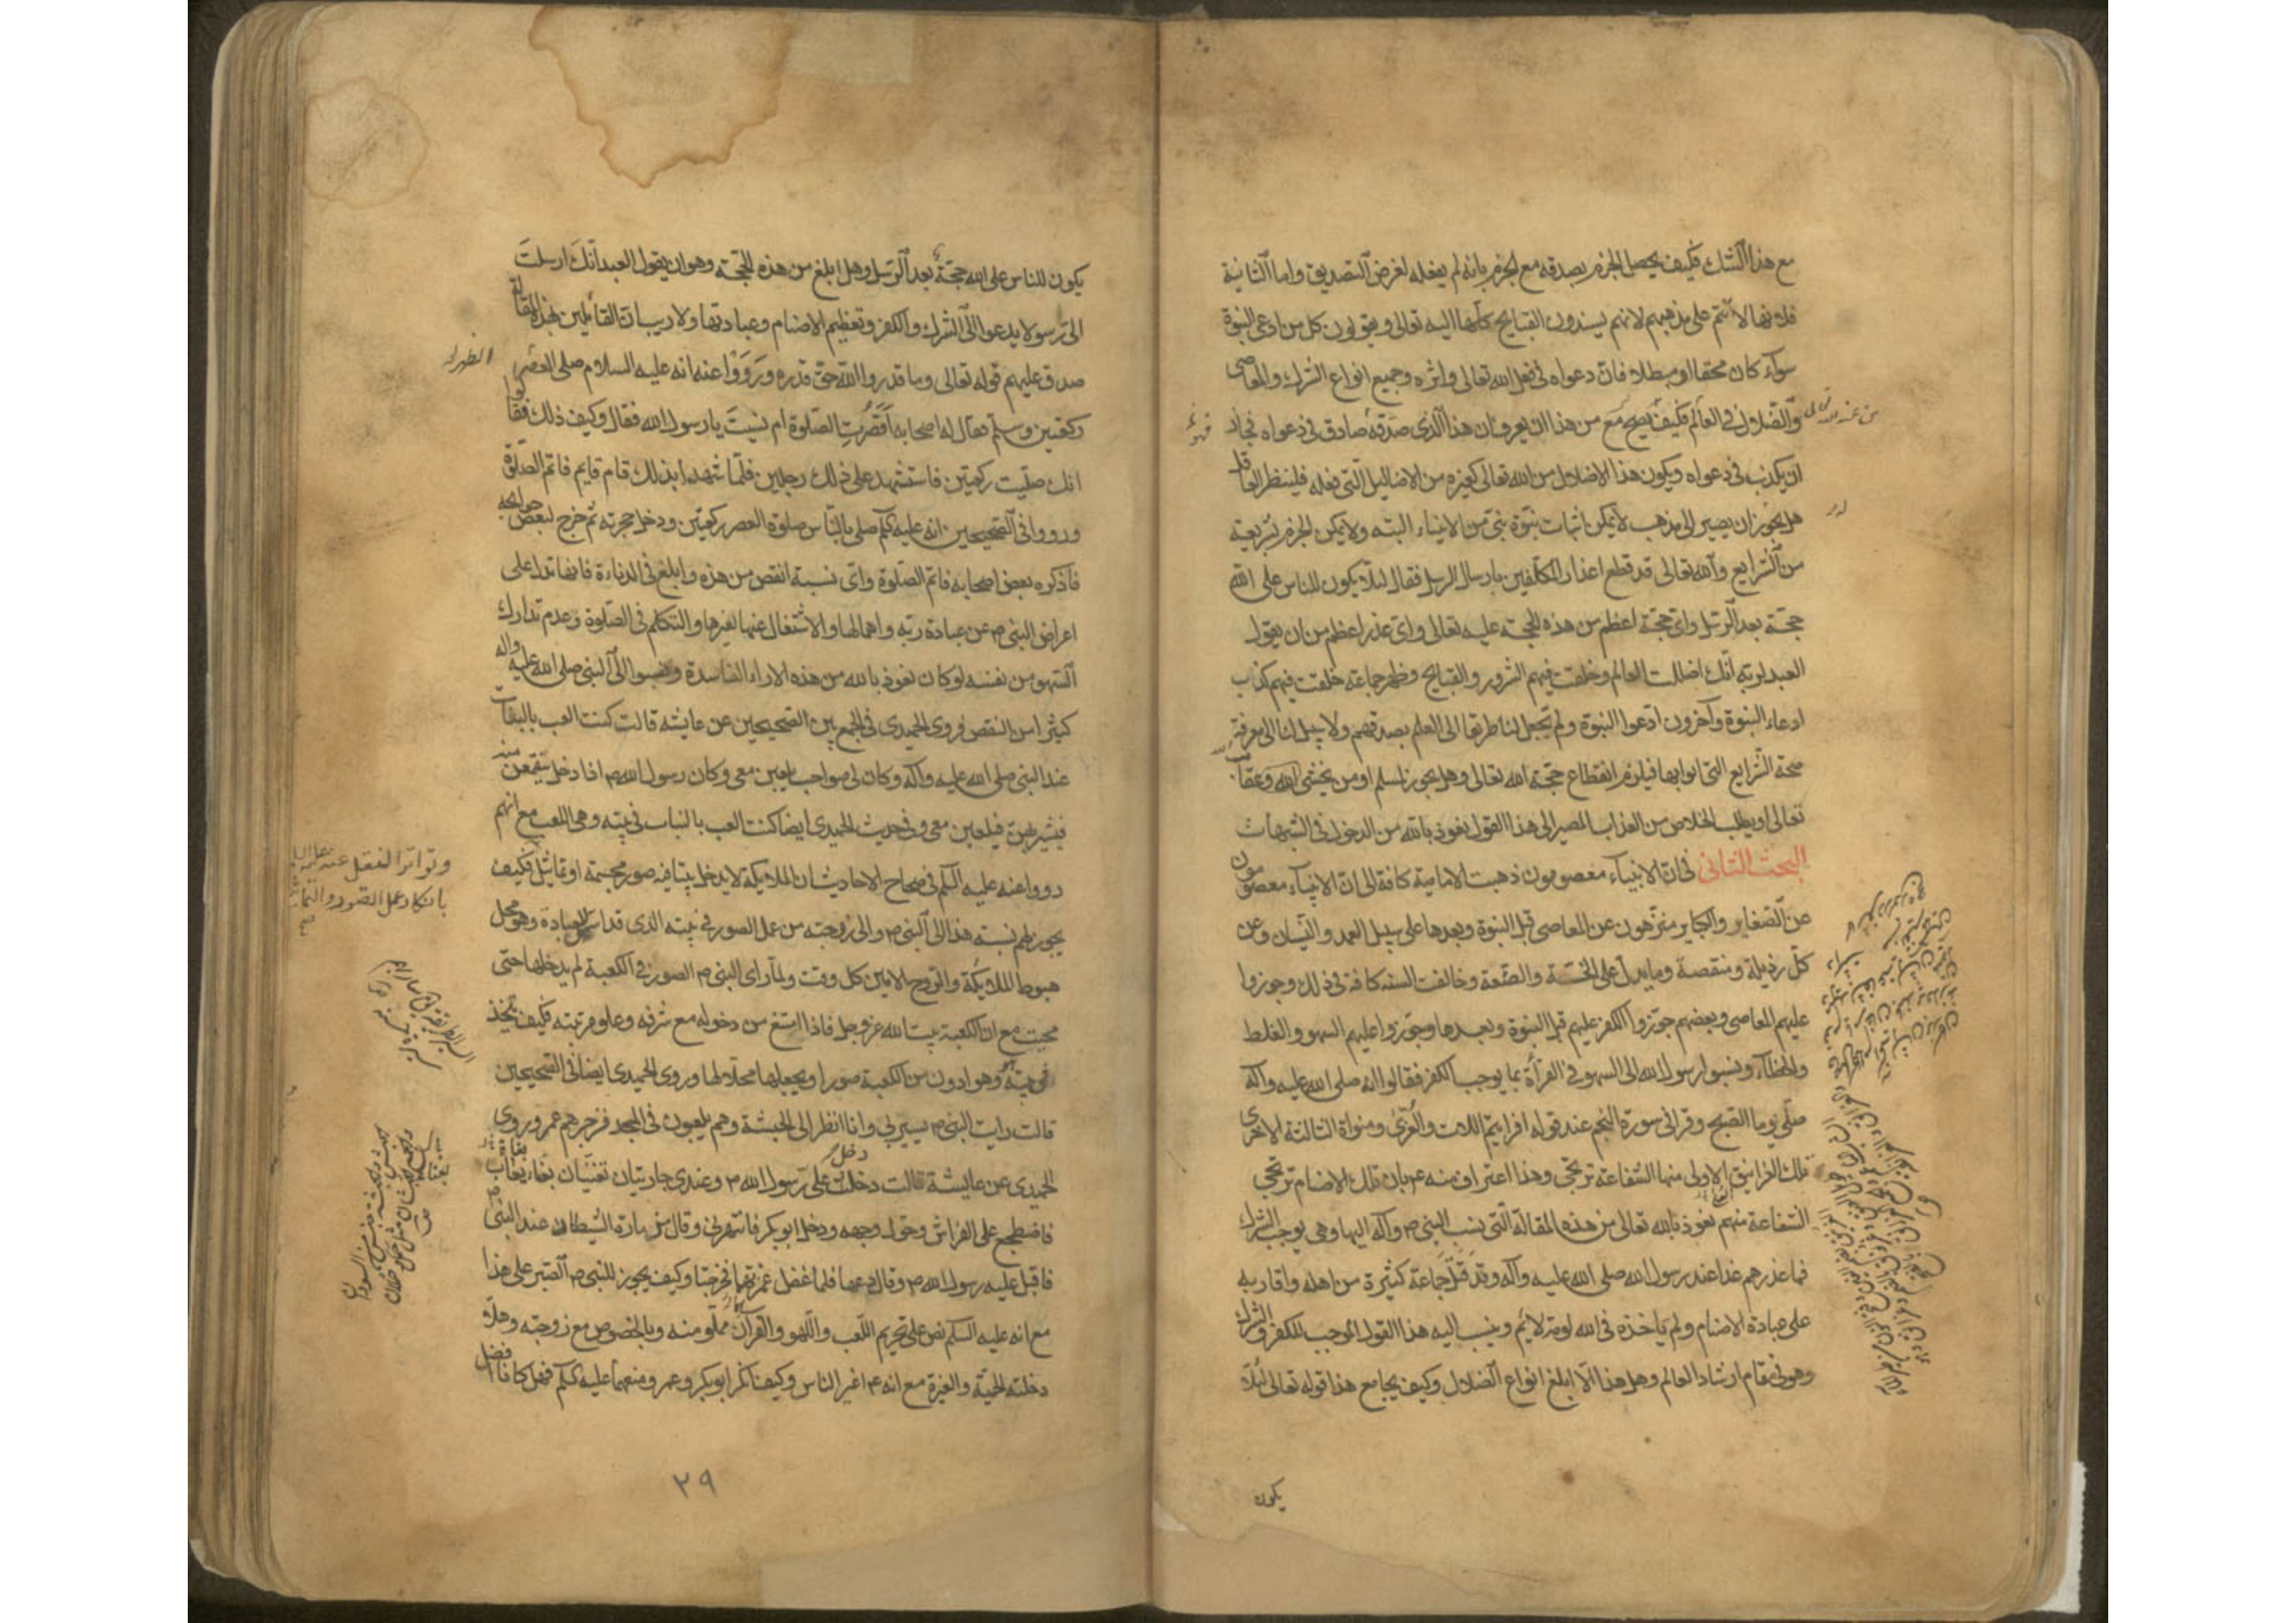 مع هذا الشك فكيف يحصل الجزم بصدقه مع الجزم بانه لم يفعله لغرض التصديق واما الثانية
فلانها لا تتم على مذهبهم لانهم يسندون القبايح كلها اليه تعالى ويقولون كل من ادعى النبوة
سواء كان محقا او مبطلا فان دعواه فى فعل الله تعالى واثره وجميع انواع الشرك والمعاصى
والضلال فى العالم فكيف يصح مع من هذا ان يعرف ان هذا الذى صدقه صادق فى دعواه فجاز
من عند الله تعالى
ان يكذب فى دعواه ويكون هذا الاضلال من الله تعالى كغيره من الاضاليل التى فعله فلينظر العاقل
هل يجوز ان يصير الى مذهب لا يمكن اثبات نبوة نبى من الانبياء البته ولا يمكن الجزم بشريعة
من الشرايع والله تعالى قد قطع اعذار المكلفين بارسال الرسل فقال لئلا يكون للناس على الله
حجة بعد الرسل واى حجة اعظم من هذه الحجة عليه تعالى واى عذر اعظم من ان يقول
العبد لربه انك اضللت العالم وخلقت فيهم الشرور والقبايح وظهر جماعة خلقت فيهم كذب
ادعاء النبوة وآخرون ادعوا النبوة ولم تجعل لنا طريقا الى العلم بصدقهم ولا سبيل لنا الى معرفة
صحة الشرايع التى اتوا بها فيلزم انقطاع حجة الله تعالى وهل يجوز لمسلم او من يخشى الله وعقاب
تعالى او يطلب الخلاص من العذاب المصير الى هذا القول نعوذ بالله من الدخول فى الشبهات
البحث الثانى فى ان الانبياء معصومون ذهبت الامامية كافة الى ان الانبياء معصومون
عن الصغاير والكباير منزهون عن المعاصى قبل النبوة وبعدها على سبيل العمد والنسيان وعن
كل رذيلة ومنقصة وما يدل على الخسة والضعة وخالفت السنه كافة فى ذلك وجوزوا
عليهم المعاصى وبعضهم جوزوا الكفر عليهم قبل النبوة وبعدها وجوزوا عليهم السهو والغلط
والخطاء ونسبوا رسول الله الى السهو فى القرأة بما يوجب الكفر فقالوا انه صلى الله عليه وآله
صلى يوما الصبح وقرا فى سورة النجم عند قوله افرايتم اللات والعزى ومنواة الثالثة الاخرى
تلك الغرانيق الاولى منها الشفاعة ترتجى وهذا اعتراف منه ع بان تلك الاصنام ترتجى
الشفاعة منهم نعوذ بالله تعالى من هذه المقالة التى نسب النبى ص وآله اليها وهى يوجب الشرك
فما عذرهم غدا عند رسول الله صلى الله عليه وآله وقد قتل جماعة كثيرة من اهله واقاربه
على عبادة الاصنام ولم ياخذه فى الله لومة لائم وينسب اليه هذا القول الموجب للكفر والشرك
وهو فى مقام ارشاد العالم وهل هذا الا ابلغ انواع الضلال وكيف يجامع هذا قوله تعالى لئلا
يكون
يكون للناس على الله حجة بعد الرسل وهل ابلغ من هذه الحجة وهو ان يقول العبد انك ارسلت
الى رسولا يدعو الى الشرك والكفر وتعظيم الاصنام وعبادتها ولا ريب ان القائلين بهذه المقالة
صدق عليهم قوله تعالى وما قدروا الله حق قدره ورووا عنه انه عليه السلام صلى العصر
الظهر له
ركعتين وسلم فقال له اصحابه اقصرت الصلوة ام نسيت يا رسول الله فقال وكيف ذلك فقالوا
انك صليت ركعتين فاستشهد على ذلك رجلين فلما شهدا بذلك قام قايم فاتم الصلوة
ورووا فى الصحيحين انه عليه السلم صلى بالناس صلوة العصر ركعتين ودخل حجرته ثم خرج لبعض حوايجه
فاذكره بعض اصحابه فاتم الصلوة واى نسبة انقص من هذه وابلغ فى الدناءة فانها تدل على
اعراض النبى ص عن عبادة ربه واهمالها والاشتغال عنها بغيرها والتكلم فى الصلوة وعدم تدارك
السهو من نفسه لو كان نعوذ بالله من هذه الاراء الفاسدة ونسبوا الى النبى صلى الله عليه واله
كثيرا من النقص فروى الحميدى فى الجمع بين الصحيحين عن عايشه قالت كنت العب بالبنات
عند النبى صلى الله عليه وآله وكان لى صواحب يلعبن معى وكان رسول الله ص اذا دخل يتقمعن منه
فيشير بهن فيلعبن معى وفى حديث الحميدى ايضا كنت العب بالبنات فى بيته وهى اللعب مع انهم
رووا عنه عليه السلم فى صحاح الاحاديث ان الملايكة لا يدخل بيتا فيه صور مجسمة او تماثيل فكيف
وتواتر النقل عنه عليه السلم
بانكار عمل الصور والتماثيل
يجوز لهم نسبة هذا الى النبى ص والى زوجته من عمل الصور فى بيته الذى قد اسس للعبادة وهو محل
هبوط الملايكة والروح الامين كل وقت ولما راى النبى ص الصور فى الكعبة لم يدخلها حتى
محيت مع ان الكعبة بيت الله عز وجل فاذا امتنع من دخوله مع شرفه وعلو مرتبته فكيف يتخذ
فى بيته وهو ادون من الكعبة صورا ويجعلها محلا لها وروى الحميدى ايضا فى الصحيحين
قالت رايت النبى ص يسترنى وانا انظر الى الحبشة وهم يلعبون فى المسجد فزجرهم عمر وروى
الحميدى عن عايشة قالت دخل على رسول الله ص وعندى جاريتان تغنيان بغناء بغاث
فاضطجع على الفراش وحول وجهه ودخل ابو بكر فانتهرنى وقال مزمارة الشيطان عند النبى
فاقبل عليه رسول الله ص وقال دعها فلما غفل غمزتهما فخرجتا وكيف يجوز للنبى ص الصبر على هذا
مع انه عليه السلم نص على تحريم اللعب واللهو والقرآن مملو منه وبالخصوص مع زوجته وهلا
دخلته الحمية والغيرة مع انه ع اغير الناس وكيف انكر ابو بكر وعمر ومنعهما عليه السلم فهل كانا افضل
٢٩